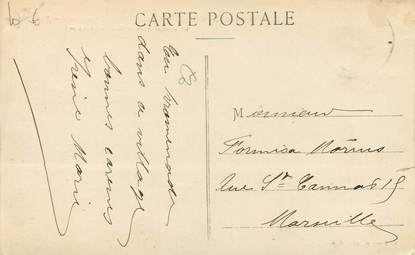 CARTE POSTALE
En promenade
dans ce village
bonnes caresses
Irène Marie
Monsieur
Formisa
Rue St Cannat 15
Marseille